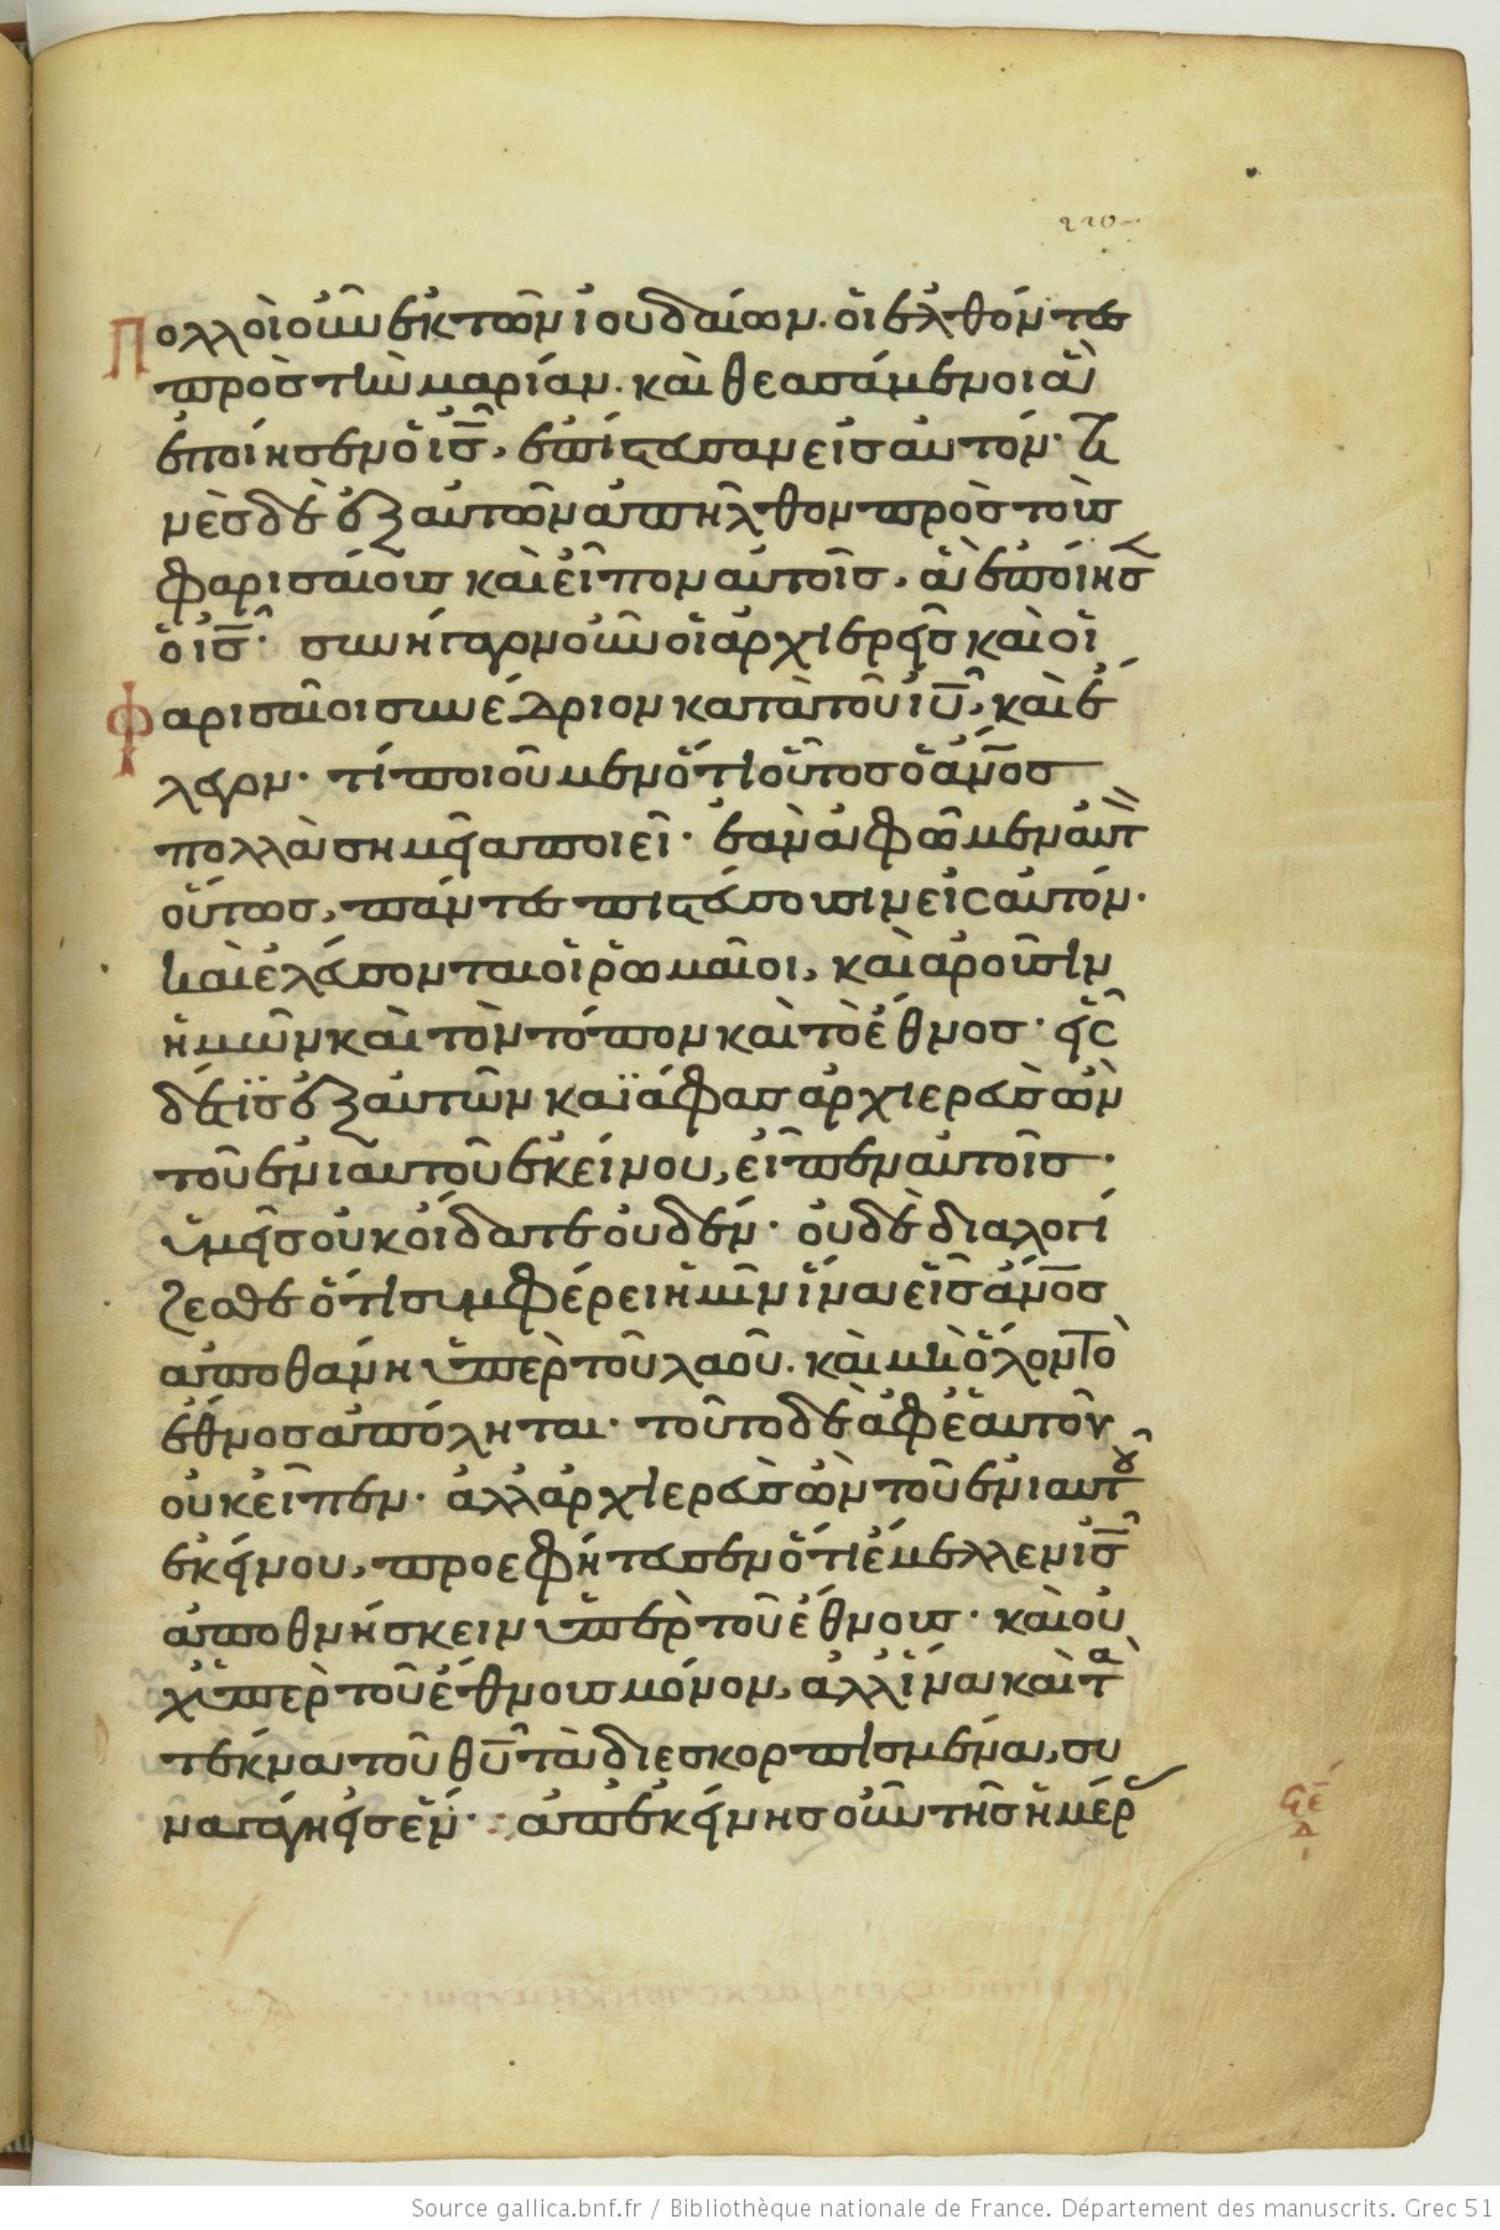 220
Πολλοὶ οὖν ἐκ τῶν ἰουδαίων. οἱ ἐλθόντες
πρὸς τὴν μαρίαν. καὶ θεασάμενοι ἃ
ἐποίησεν ὁ ις̅, ἐπίστευσαν εἰς αὐτόν· τι
νὲς δὲ ἐξ αὐτῶν ἀπῆλθον πρὸς τοὺς
φαρισαίους καὶ εἶπον αὐτοῖς, ἃ ἐποίησεν
ὁ ις̅· συνήγαγον οὖν οἱ ἀρχιερεῖς καὶ οἱ
φαρισαῖοι συνέδριον κατὰ τοῦ ιυ̅, καὶ ἔ
λεγον· τί ποιοῦμεν ὅτι οὗτος ὁ ἀνο̅ς
πολλὰ σημεῖα ποιεῖ· ἐὰν ἀφῶμεν αὐτὸν
οὕτως, πάντες πιστεύσουσιν εἰς αὐτόν·
καὶ ἐλεύσονται οἱ ῥωμαῖοι, καὶ ἀροῦσιν
ἡμῶν καὶ τὸν τόπον καὶ τὸ ἔθνος· εἷς
δέ τις ἐξ αὐτῶν καϊάφας ἀρχιερεὺς ὢν
τοῦ ἐνιαυτοῦ ἐκείνου, εἶπεν αὐτοῖς·
ὑμεῖς οὐκ οἴδατε οὐδέν· οὐδὲ διαλογί
ζεσθε ὅτι συμφέρει ἡμῖν ἵνα εἷς ἄνο̅ς
ἀποθάνη ὑπὲρ τοῦ λαοῦ. καὶ μὴ ὅλον τὸ
ἔθνος ἀπόληται· τοῦτο δὲ ἀφ' ἑαυτοῦ
οὐκ εἶπεν· ἀλλ' ἀρχιερεὺς ὢν τοῦ ἐνιαυτοῦ
ἐκείνου, προεφήτευσεν ὅτι ἔμελλεν ις̅
ἀποθνήσκειν ὑπὲρ τοῦ ἔθνους· καὶ οὐ
χ' ὑπὲρ τοῦ ἔθνους μόνον, ἀλλ' ἵνα καὶ τὰ
τέκνα τοῦ θυ̅ τὰ διεσκορπισμένα, συ
ναγάγη εἰς ἕν· ἀπ' ἐκείνης οὖν τῆς ἡμέρας
Source gallica.bnf.fr / Bibliothèque nationale de France. Département des manuscrits. Grec 51